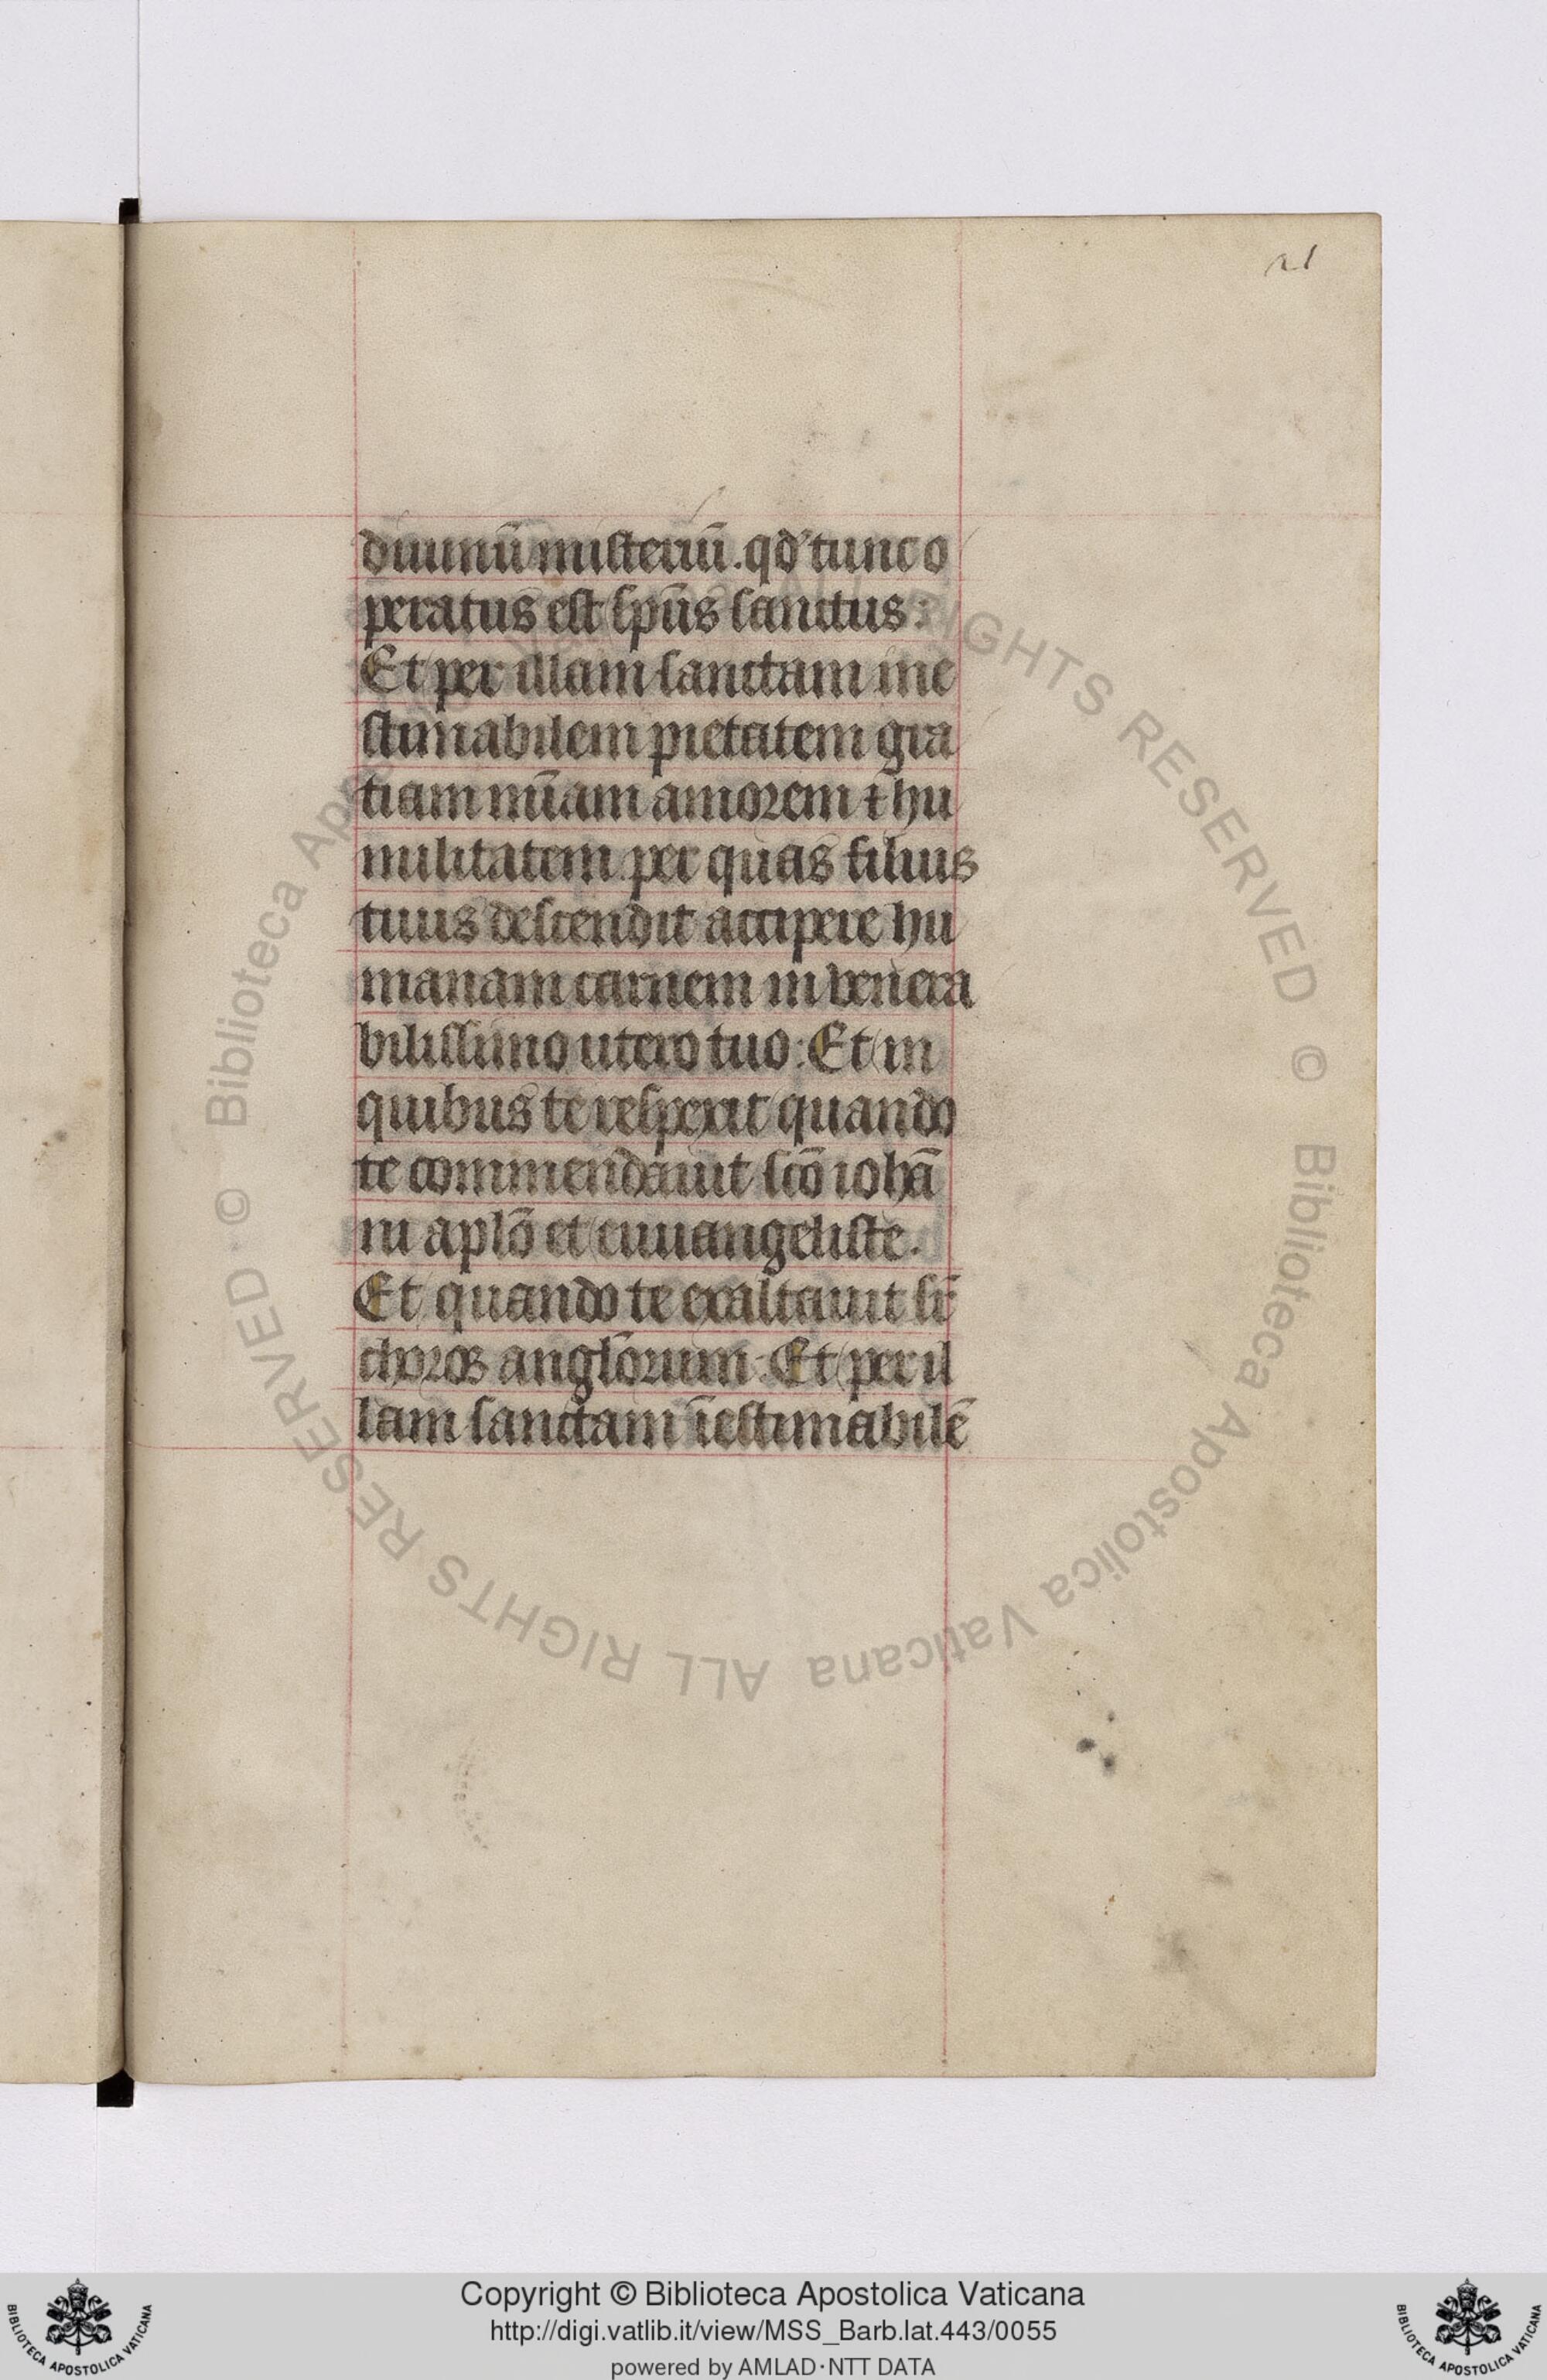 21
diuinū misteriū. qd' tunc o
peratus est sp̄us sanctus:
Et per illam sanctam ine
stimabilem pietatem gra
tiam mīam amorem ⁊ hu
militatem per quas filius
tuus descendit accipere hu
manam carnem in venera
bilissimo utero tuo: Et in
quibus te respexit quando
te commendauit sc̄o iohā
ni apl̄o et euuangeliste.
Et quando te exaltauit sr̄
choros angl̄orum: Et per il
lam sanctam īestimabilē
© Biblioteca Apostolica Vaticana ALL RIGHTS RESERVED © Biblioteca Apostolica Vaticana ALL RIGHTS RESERVED
BIBLIOTECA APOSTOLICA VATICANA
Copyright © Biblioteca Apostolica Vaticana
http://digi.vatlib.it/view/MSS_Barb.lat.443/0055
powered by AMLAD·NTT DATA
BIBLIOTECA APOSTOLICA VATICANA